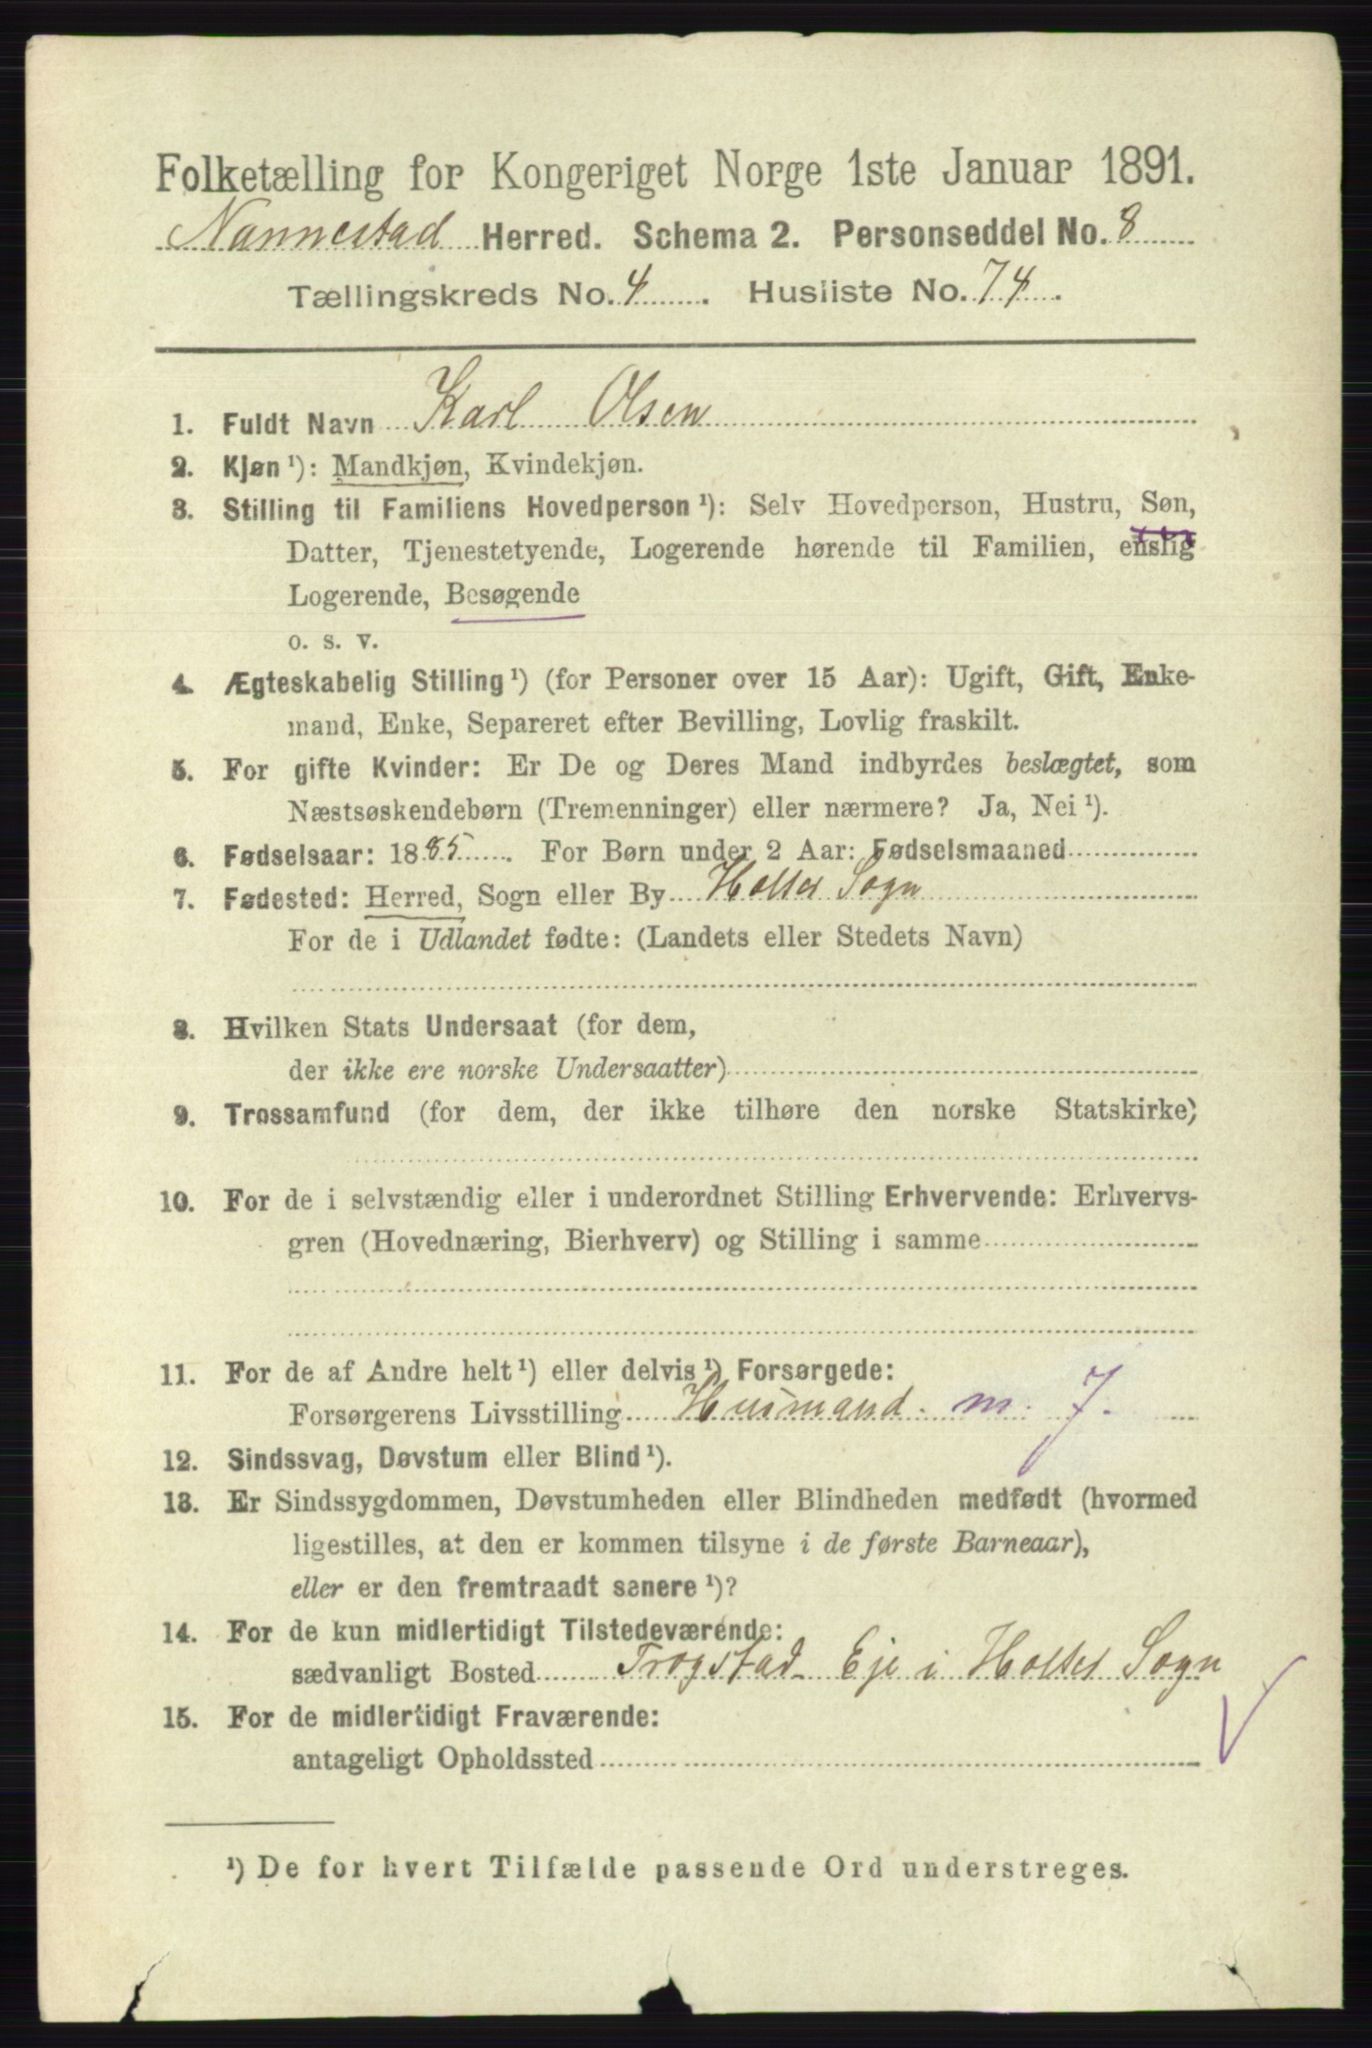 Folketælling for Kongeriget Norge 1ste Januar 1891.
Nannestad Herred. Schema 2. Personseddel No. 8
Tællingskreds No. 4. Husliste No. 74.
1. Fuldt Navn Karl Olsen
2. Kjøn ¹): Mandkjøn, Kvindekjøn.
3. Stilling til Familiens Hovedperson ¹): Selv Hovedperson, Hustru, Søn,
Datter, Tjenestetyende, Logerende hørende til Familien, enslig
Logerende, Besøgende
o. s. v.
4. Ægteskabelig Stilling ¹) (for Personer over 15 Aar): Ugift, Gift, Enke-
mand, Enke, Separeret efter Bevilling, Lovlig fraskilt.
5. For gifte Kvinder: Er De og Deres Mand indbyrdes beslægtet, som
Næstsøskendebørn (Tremenninger) eller nærmere? Ja, Nei ¹).
6. Fødselsaar: 1885. For Børn under 2 Aar: Fødselsmaaned
7. Fødested: Herred, Sogn eller By Holter Sogn
For de i Udlandet fødte: (Landets eller Stedets Navn)
8. Hvilken Stats Undersaat (for dem,
der ikke ere norske Undersaatter)
9. Trossamfund (for dem, der ikke tilhøre den norske Statskirke)
10. For de i selvstændig eller i underordnet Stilling Erhvervende: Erhvervs-
gren (Hovednæring, Bierhverv) og Stilling i samme
11. For de af Andre helt ¹) eller delvis ¹) Forsørgede:
Forsørgerens Livsstilling Husmand. m. J.
12. Sindssvag, Døvstum eller Blind ¹).
13. Er Sindssygdommen, Døvstumheden eller Blindheden medfødt (hvormed
ligestilles, at den er kommen tilsyne i de første Barneaar),
eller er den fremtraadt senere ¹)?
14. For de kun midlertidigt Tilstedeværende:
sædvanligt Bosted Trogstad Eje i Holter Sogn
15. For de midlertidigt Fraværende:
antageligt Opholdssted
¹) De for hvert Tilfælde passende Ord understreges.